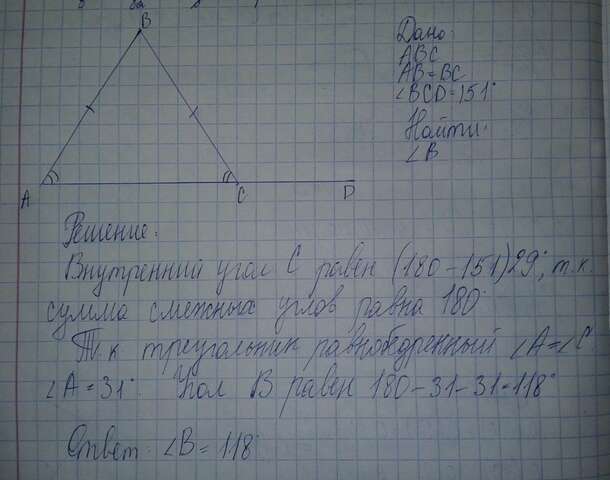 B
A
C
D
Дано:
ABC
AB=BC
∠BCD=151°
Найти:
∠B
Решение:
Внутренний угол C равен (180-151)29°, т.к.
сумма смежных углов равна 180°
Т.к треугольник равнобедренный ∠A=∠C
∠A=31° Угол B равен 180-31-31=118°
Ответ: ∠B=118°